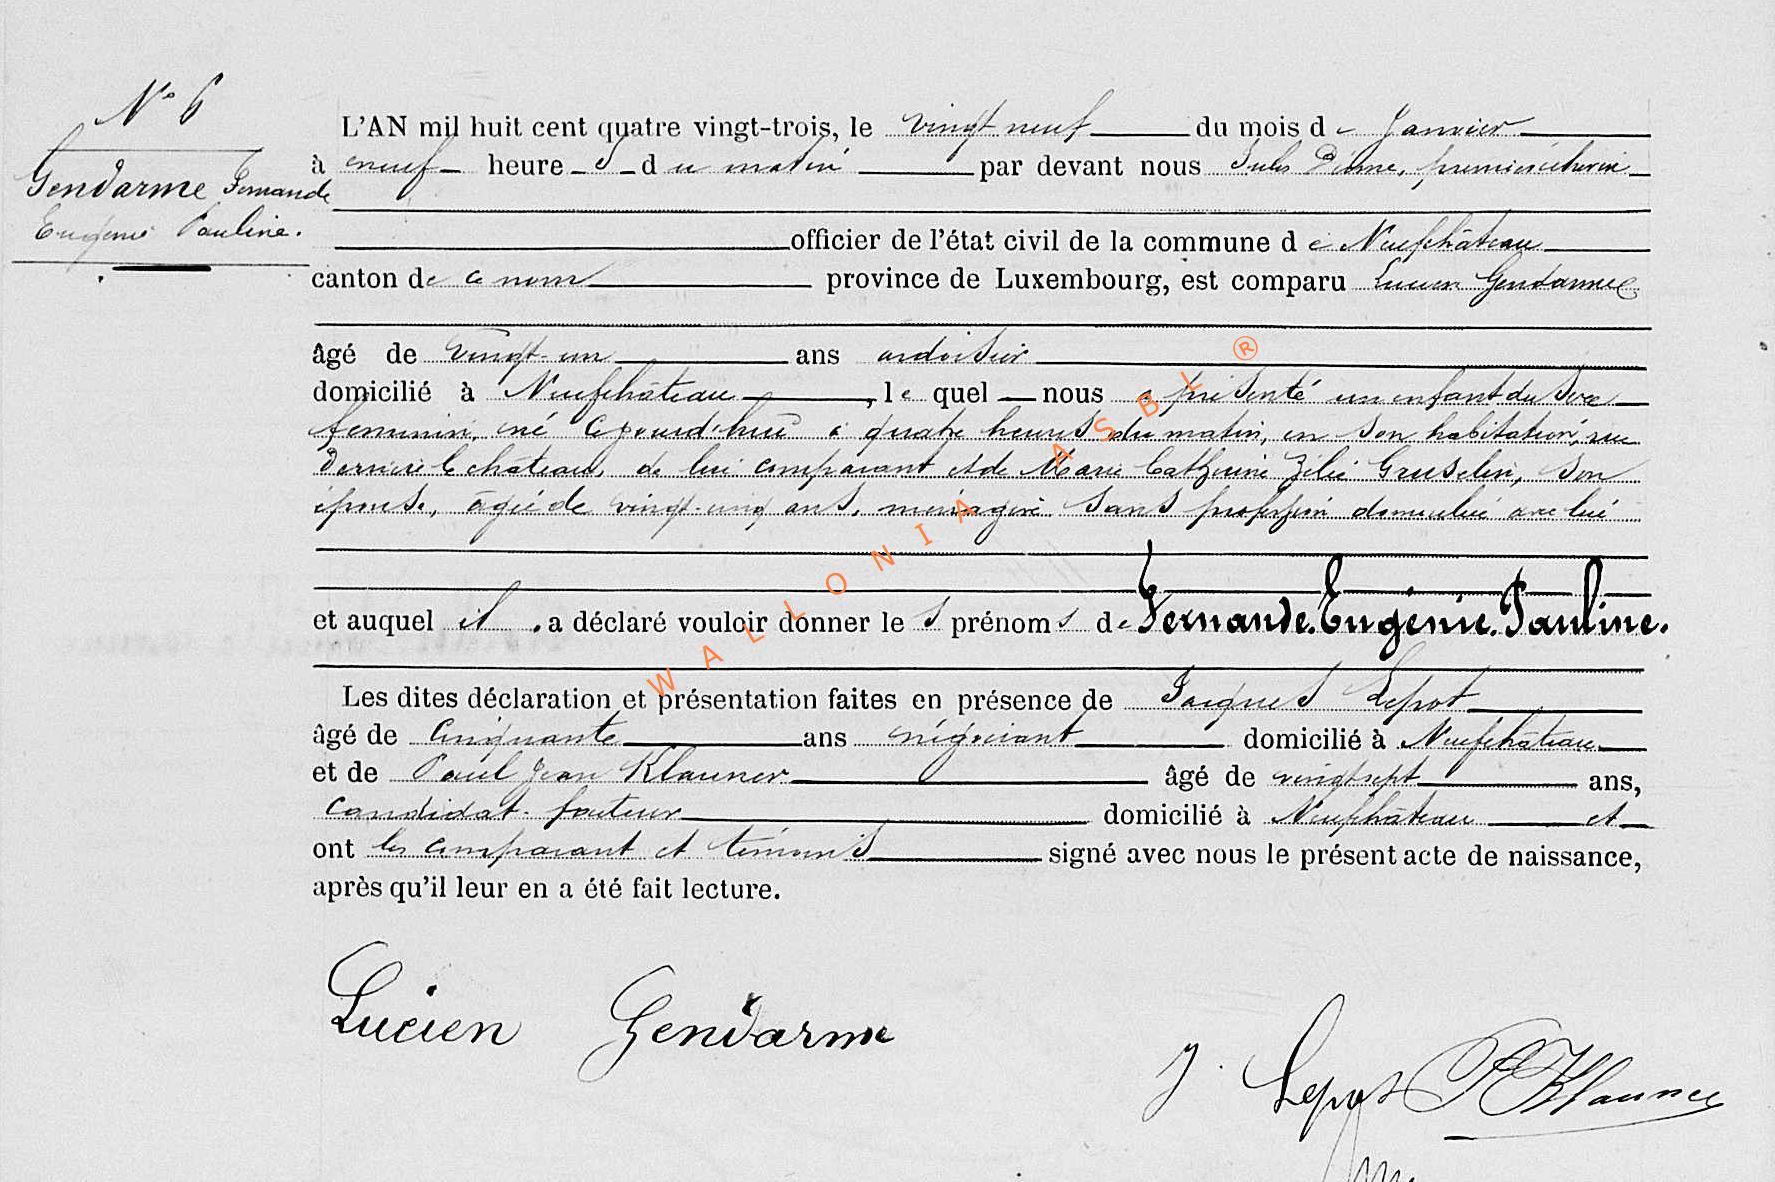 N° 6
Gendarme Fernande
Eugénie Pauline.
L'AN mil huit cent quatre vingt-trois, le vingt neuf du mois de Janvier
à neuf heures du matin par devant nous Jules premier échevin
officier de l'état civil de la commune de Neufchâteau
canton de ce nom province de Luxembourg, est comparu Lucien Gendarme
âgé de vingt-un ans ardoisier
domicilié à Neufchâteau, le quel nous a présenté un enfant du sexe
féminin, né cejourd'hui à quatre heures du matin, en son habitation, rue
derrière le château, de lui comparant et de Marie Catherine Zélie Gruselin, son
épouse, âgée de vingt-cinq ans, ménagère sans profession domiciliée avec lui
et auquel il a déclaré vouloir donner les prénoms de Fernande. Eugénie. Pauline.
Les dites déclaration et présentation faites en présence de Jacques Lepot
âgé de cinquante ans négociant domicilié à Neufchâteau
et de Paul Jean Klauner âgé de vingt sept ans,
candidat facteur domicilié à Neufchâteau et
ont les comparant et témoins signé avec nous le présent acte de naissance,
après qu'il leur en a été fait lecture.
WALLONIA ASBL ®
Lucien Gendarme
J. Lepot P Klauner